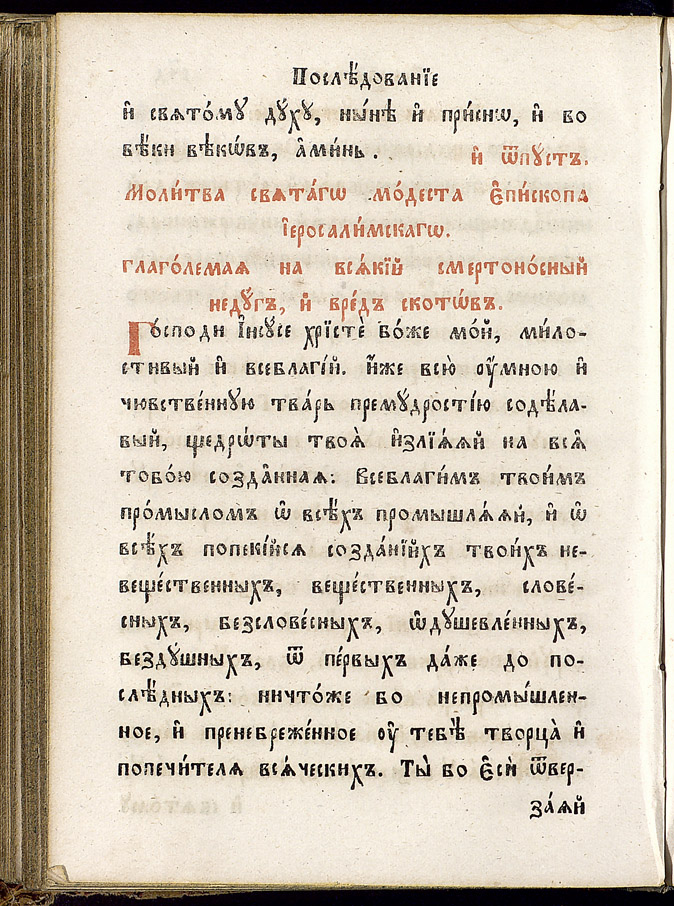 Послѣ́дованїе
и҆ свѧто́мꙋ дꙋ́хꙋ, ны́нѣ и҆ при́снѡ, и҆ во
вѣ́ки вѣкѡ́въ, а҆ми́нь. и҆ ѿпꙋ́стъ.
Моли́тва свѧта́гѡ мо́деста є҆пи́скопа
і҆еросали́мскагѡ.
глаго́лемаѧ на всѧ́кїй смертоно́сный
недꙋ́гъ, и҆ вре́дъ скотѡ́въ.
Го́споди І҆исꙋ́се хрїстѐ бо́же мо́й, ми́ло-
стивый и҆ всебла́гїй. и҆́же всю̀ ᲂу҆́мною и҆
чю́вственнꙋю тва́рь премꙋ́дростїю содѣ́ла-
вый, щедрѡ́ты твоѧ̀ и҆злїѧ́ѧй на всѧ̀
тобо́ю созда̑ннаѧ: Всебл҃аги́мъ твои́мъ
про́мысломъ ѡ҆ всѣ́хъ промышлѧ́ѧй, и҆ ѡ҆
всѣ́хъ попекі́йсѧ созда́нїихъ твои́хъ не-
веще́ственныхъ, веще́ственныхъ, слове́-
сныхъ, безслове́сныхъ, ѡ҆дꙋшевле́нныхъ,
бездꙋ́шныхъ, ѿ пе́рвыхъ да́же до по-
слѣ́дныхъ: ничто́же бо непромы́шлен-
ное, и҆ пренебреже́нное ᲂу҆ тебѣ̀ творца̀ и҆
попечи́телѧ всѧ́ческихъ. Ты̀ бо є҆сѝ ѿвер-
за́ѧй